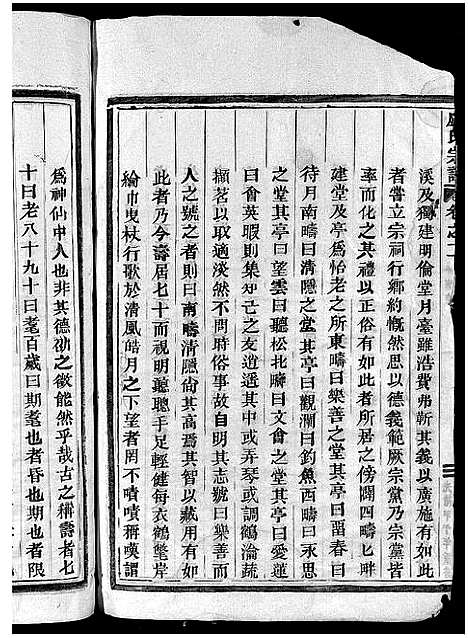 氏宗譜 卷之二
溪及獨建明倫堂月臺雖浩費弗靳其義以廣施有如此
者嘗立宗祠行鄉約慨然思以德義範厥宗黨乃宗黨皆
率而化之其禮以正俗有如此者所居之傍闢四疇匕畔
建堂及亭爲怡老之所東疇曰樂善之堂其亭曰畱春曰
待月南疇曰清隱之堂其亭曰觀瀾曰釣魚西疇曰永思
之堂其亭曰望雲曰聽松北疇曰文會之堂其亭曰愛蓮
曰會英暇則集知己之友逍遙於其中或弄琴或調鶴瀹蔬
擷茗以取適淡然不問時俗事故自明其志號曰樂善而
人之號之者則曰南疇清隱尚其高焉其智以藏用有如
此者乃今壽届七十而視明聽聰手足輕健每衣鶴氅岸
綸巾曳杖行歌於清風皓月之下望者罔不嘖嘖稱嘆謂
爲神仙中人也非其德劭之徵能然乎哉古之稱壽者七
十曰老八十九十曰耄百歲曰期耄也者昏也期也者限